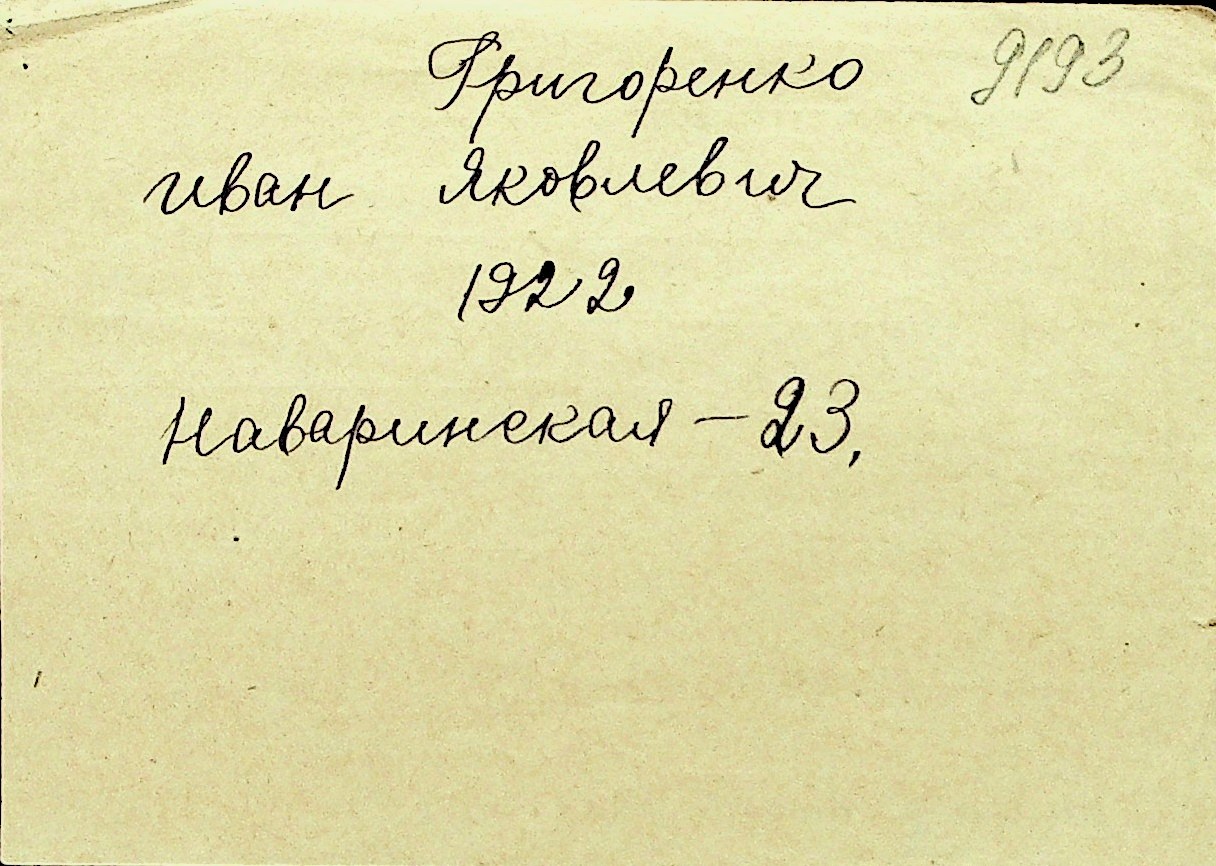 Григоренко 9193
иван Яковлевич
1922
Наваринская – 23.